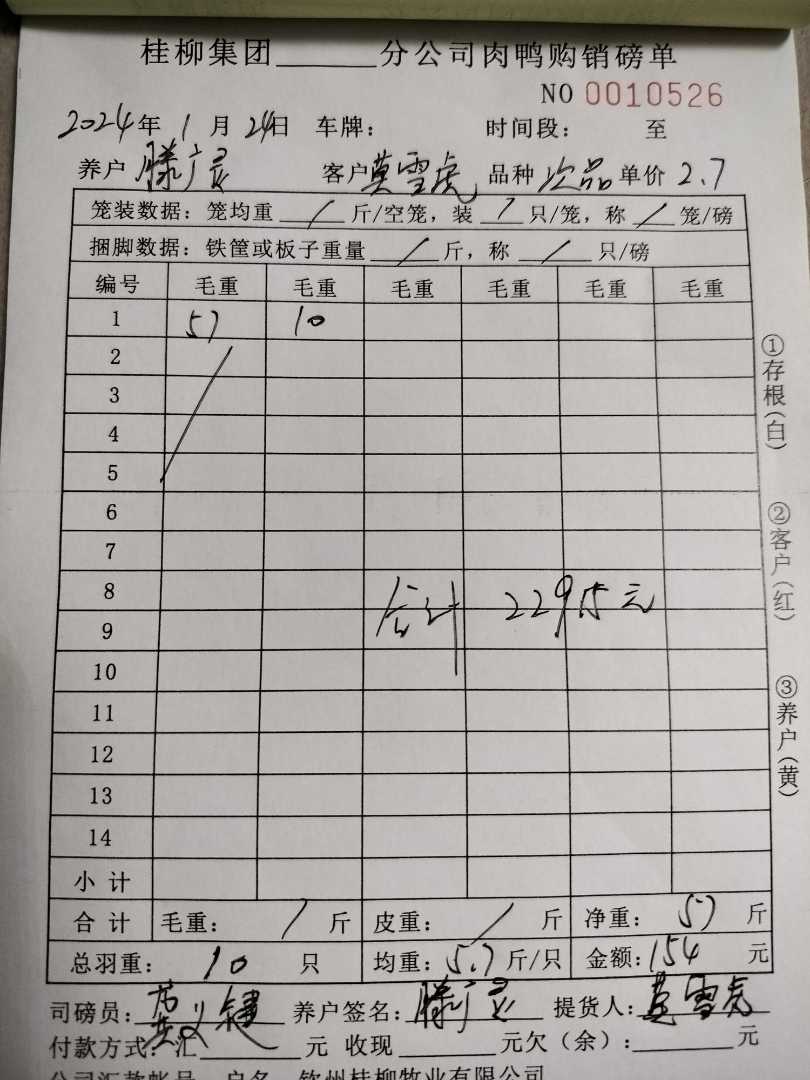 桂柳集团______分公司肉鸭购销磅单
NO 0010526
2024年 1月 24日 车牌: 时间段: 至
养户 滕广灵 客户 莫雪虎 品种 次品 单价 2.7
笼装数据: 笼均重 / 斤/空笼, 装 / 只/笼, 称 / 笼/磅
捆脚数据: 铁筐或板子重量 / 斤, 称 / 只/磅
编号 毛重 毛重 毛重 毛重 毛重 毛重
1 57 10
2
3
4
5
6
7
8
合计 2295元
9
10
11
12
13
14
小计
合计 毛重: / 斤 皮重: / 斤 净重: 57 斤
总羽重: 10 只 均重: 5.7 斤/只 金额: 154 元
司磅员: 养户签名: 滕广灵 提货人: 莫雪虎
付款方式: 汇______元 收现______元欠(余):______元
公司汇款帐号 户名 钦州桂柳牧业有限公司
①存根(白)
②客户(红)
③养户(黄)